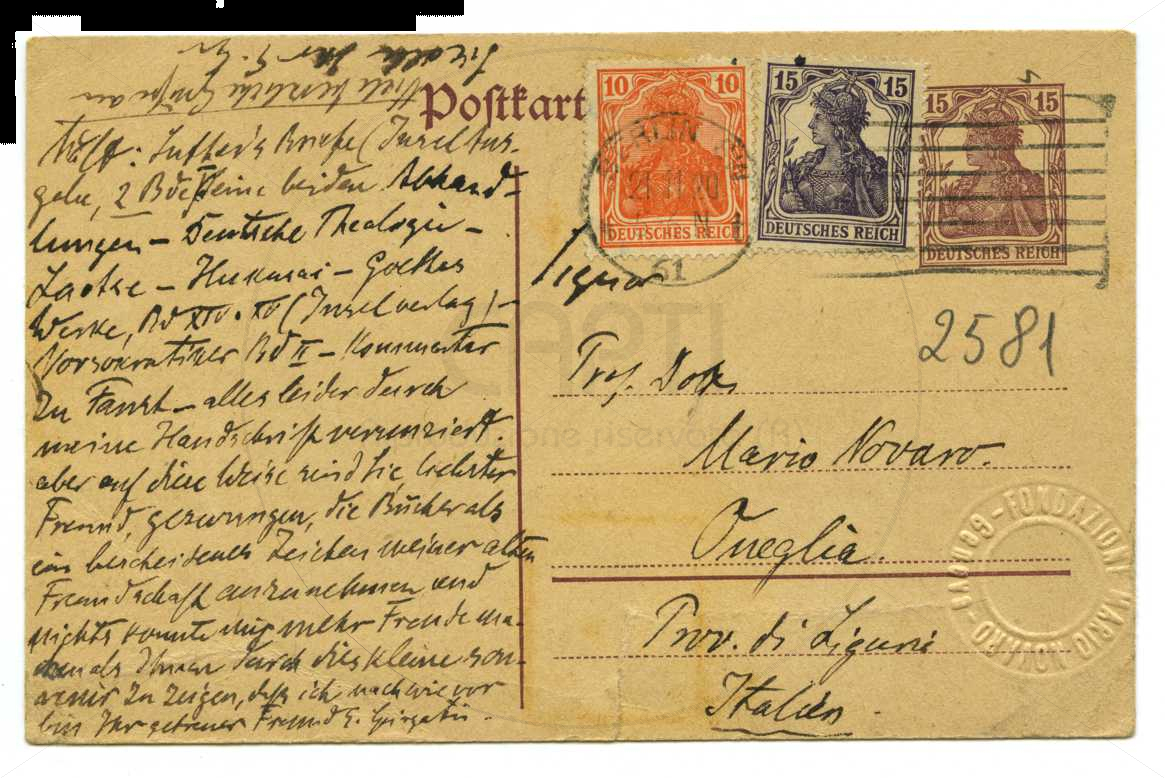 Viele herzliche Grüße an
Postkarte
10 10
DEUTSCHES REICH
15 15
DEUTSCHES REICH
15 15
DEUTSCHES REICH
BERLIN
51
2581
Luther's Briefe (Insel Aus-
gabe, 2 Bde) seine beiden Abhand-
lungen – Deutsche Theologie –
Laotse – – Goethes
Werke, Bd XIV. XV (Inselverlag) –
Vorsokratiker Bd II – Kommentar
zu Faust – alles leider durch
meine Handschrift verunziert
aber auf diese Weise sind Sie, liebster
Freund, gezwungen, die Bücher als
ein bescheidenes Zeichen meiner alten
Freundschaft anzunehmen und
nichts konnte mir mehr Freude ma-
chen als Ihnen durch dies kleine sou-
venir zu zeigen, daß ich nach wie vor
bin Ihr getreuer Freund
Signor
Prof. Dott.
Mario Novaro.
Oneglia.
Prov. di Liguri
Italien.
FONDAZIONE MARIO NOVARO - Genova -